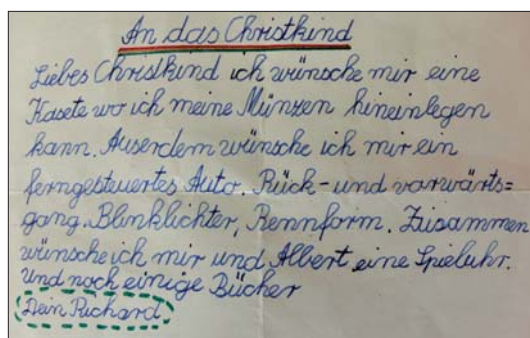 An das Christkind
Liebes Christkind ich wünsche mir eine
Kasete wo ich meine Münzen hineinlegen
kann. Auserdem wünsche ich mir ein
ferngesteuertes Auto. Rück- und vorwärts=
gang. Blinklichter, Rennform. Zusammen
wünsche ich mir und Albert eine Spieluhr.
und noch einige Bücher
Dein Richard